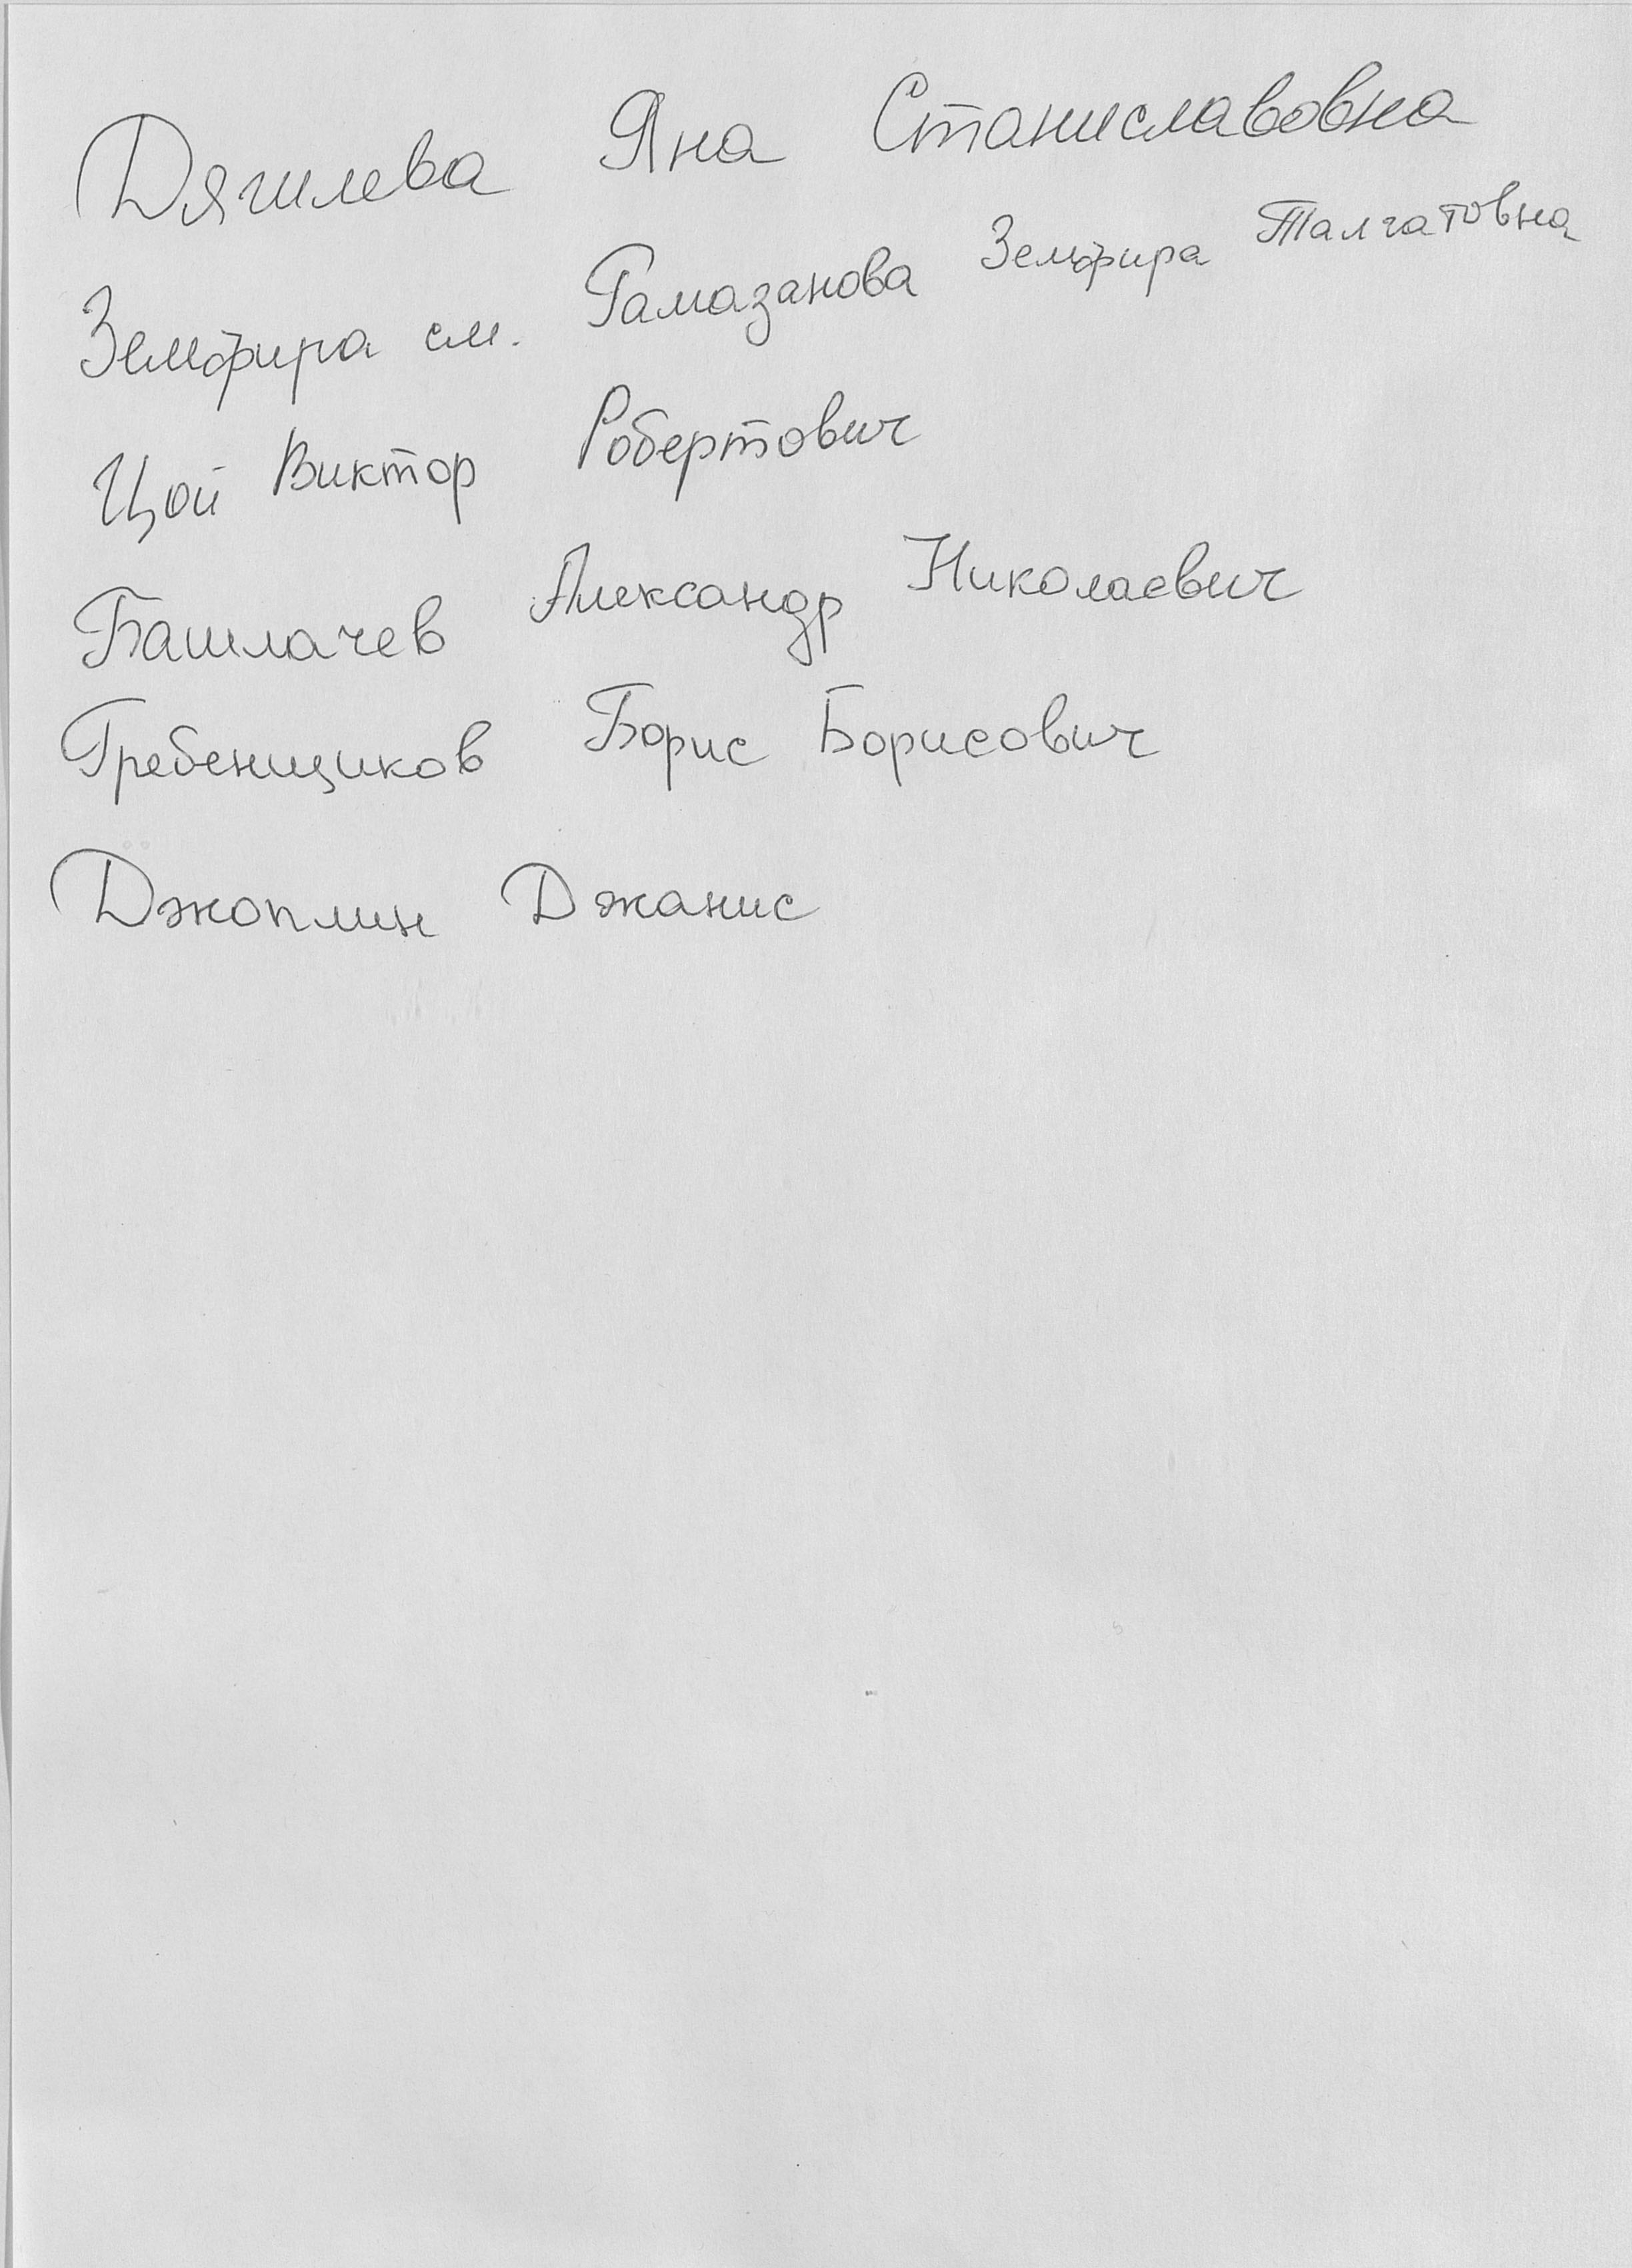 Дягилева Яна Станиславовна
Земфира см. Рамазанова Земфира Талгатовна
Цой Виктор Робертович
Башлачев Александр Николаевич
Гребенщиков Борис Борисович
Джоплин Джанис